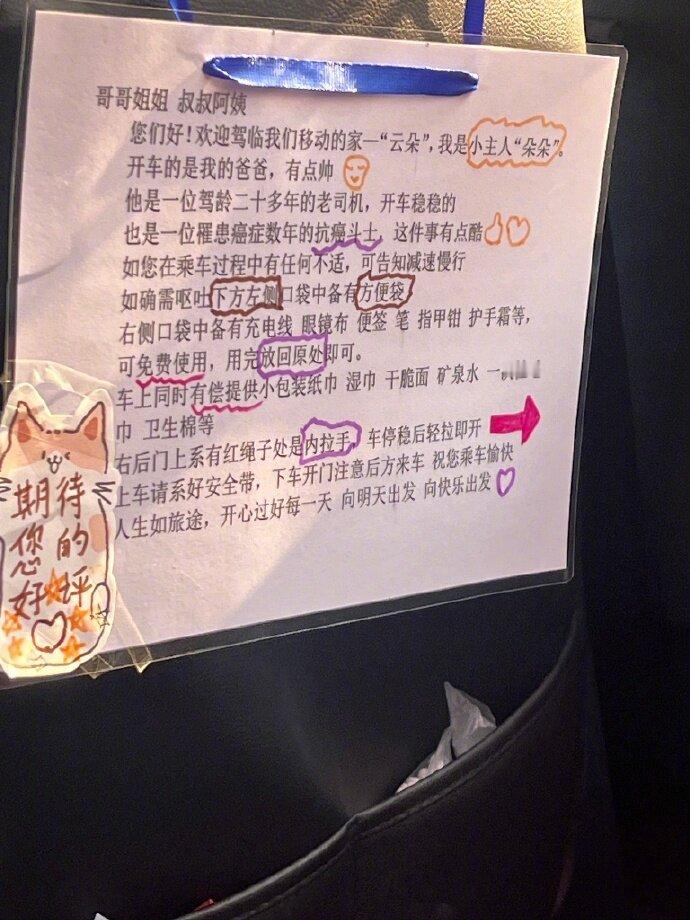 哥哥姐姐 叔叔阿姨
您们好！欢迎驾临我们移动的家—“云朵”，我是小主人“朵朵”。
开车的是我的爸爸，有点帅
他是一位驾龄二十多年的老司机，开车稳稳的
也是一位罹患癌症数年的抗癌斗士，这件事有点酷
如您在乘车过程中有任何不适，可告知减速慢行
如确需呕吐下方左侧口袋中备有方便袋
右侧口袋中备有充电线 眼镜布 便签 笔 指甲钳 护手霜等，
可免费使用，用完放回原处即可。
车上同时有偿提供小包装纸巾 湿巾 干脆面 矿泉水 一
巾 卫生棉等
右后门上系有红绳子处是内拉手，车停稳后轻拉即开
上车请系好安全带，下车开门注意后方来车 祝您乘车愉快
人生如旅途，开心过好每一天 向明天出发 向快乐出发
期待
您的
好评